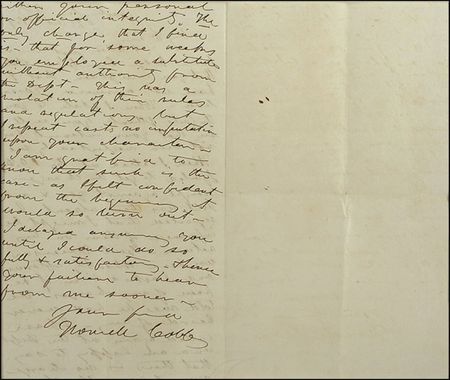 your personal
or official integrity. The
only charge that I find
is that for some weeks
you employed a substitute
without authority from
the Dept – This was a
violation of their rules
and regulations, but
I repeat casts no imputation
upon your character –
I am gratified to
know that such is the
case – as I felt confident
from the beginning it
would so turn out –
I delayed answering you
until I could do so
fully & satisfactory – Hence
your failure to hear
from me sooner –
Your frnd
Howell Cobb